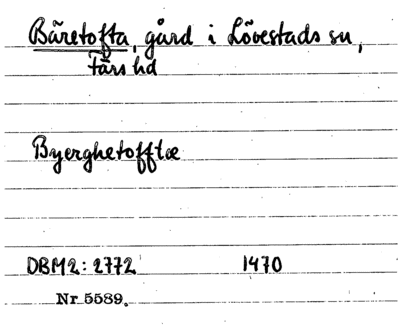 Bäretofta, gård i Lövestads sn,
Färs hd
Byerghetofftæ
DBM2: 2772 1470
Nr 5589.